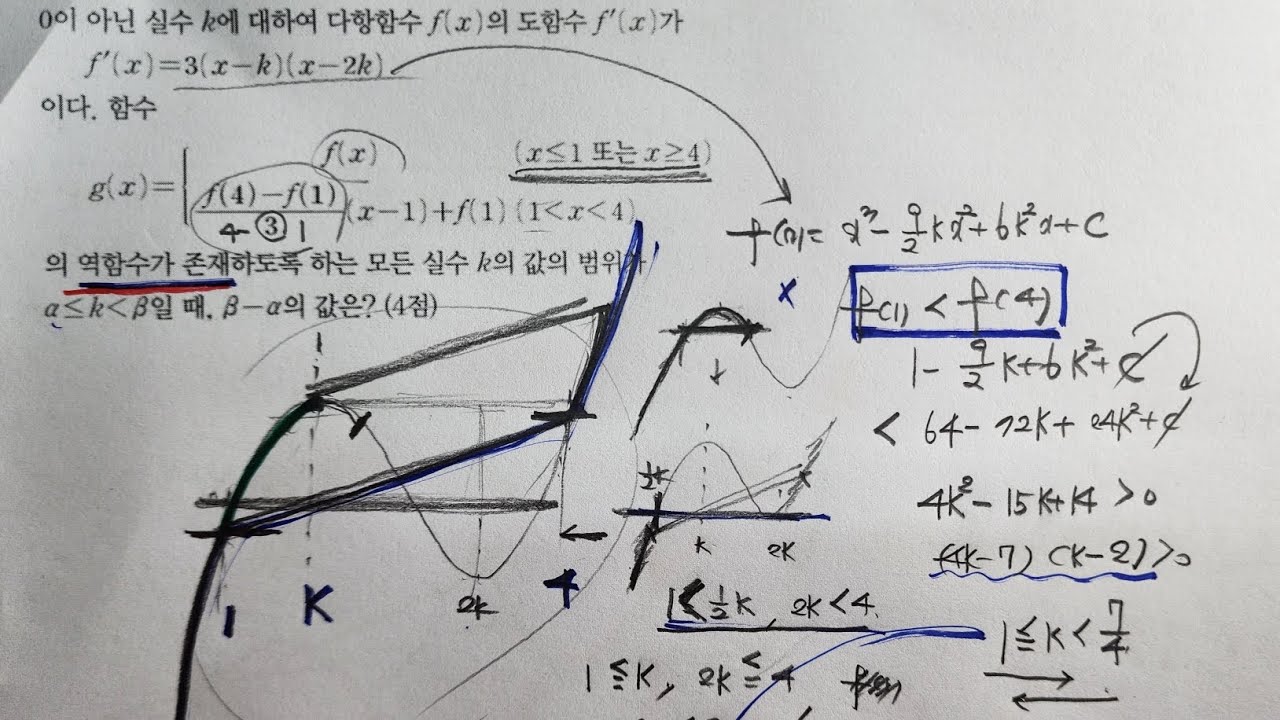 0이 아닌 실수 k에 대하여 다항함수 f(x)의 도함수 f'(x)가
f'(x)=3(x-k)(x-2k)
이다. 함수
g(x)={ f(x) (x≤1 또는 x≥4)
f(4)-f(1)/3 (x-1)+f(1) (1<x<4)
4- 1
의 역함수가 존재하도록 하는 모든 실수 k의 값의 범위가
α≤k<β일 때, β-α의 값은? (4점)
f(x)= x³- 9/2 kx²+6k²x+C
x
f(1) < f(4)
1- 9/2 K+6K²+C
< 64-72K+24K²+C
4K²-15K+14 >0
(4K-7)(K-2)>0
1/2 K
K
2K
1
K
2K
4
1≤ 1/2 K, 2K<4
1≤K< 7/4
1≤K, 2K≤4